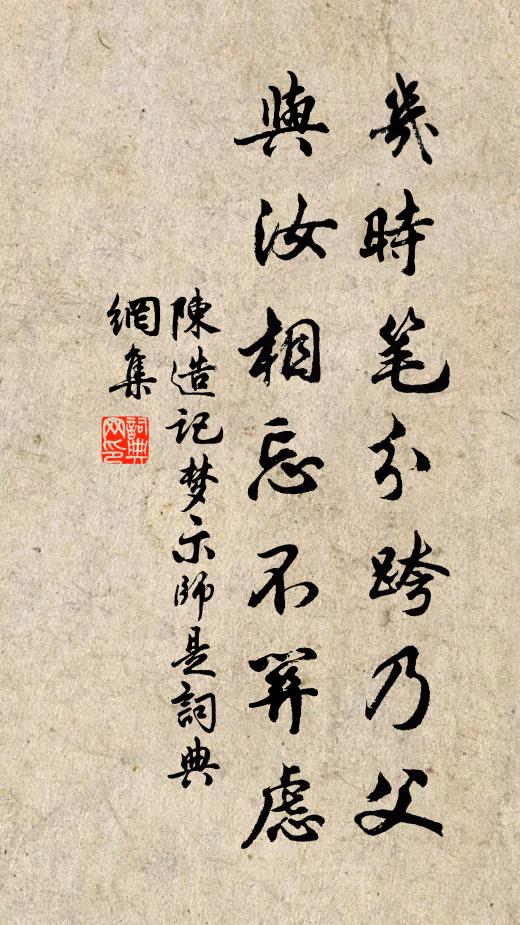 幾時笔分跨乃父
與汝相忘不關慮
陳造記梦示師是詞典
網集
詞典
网印